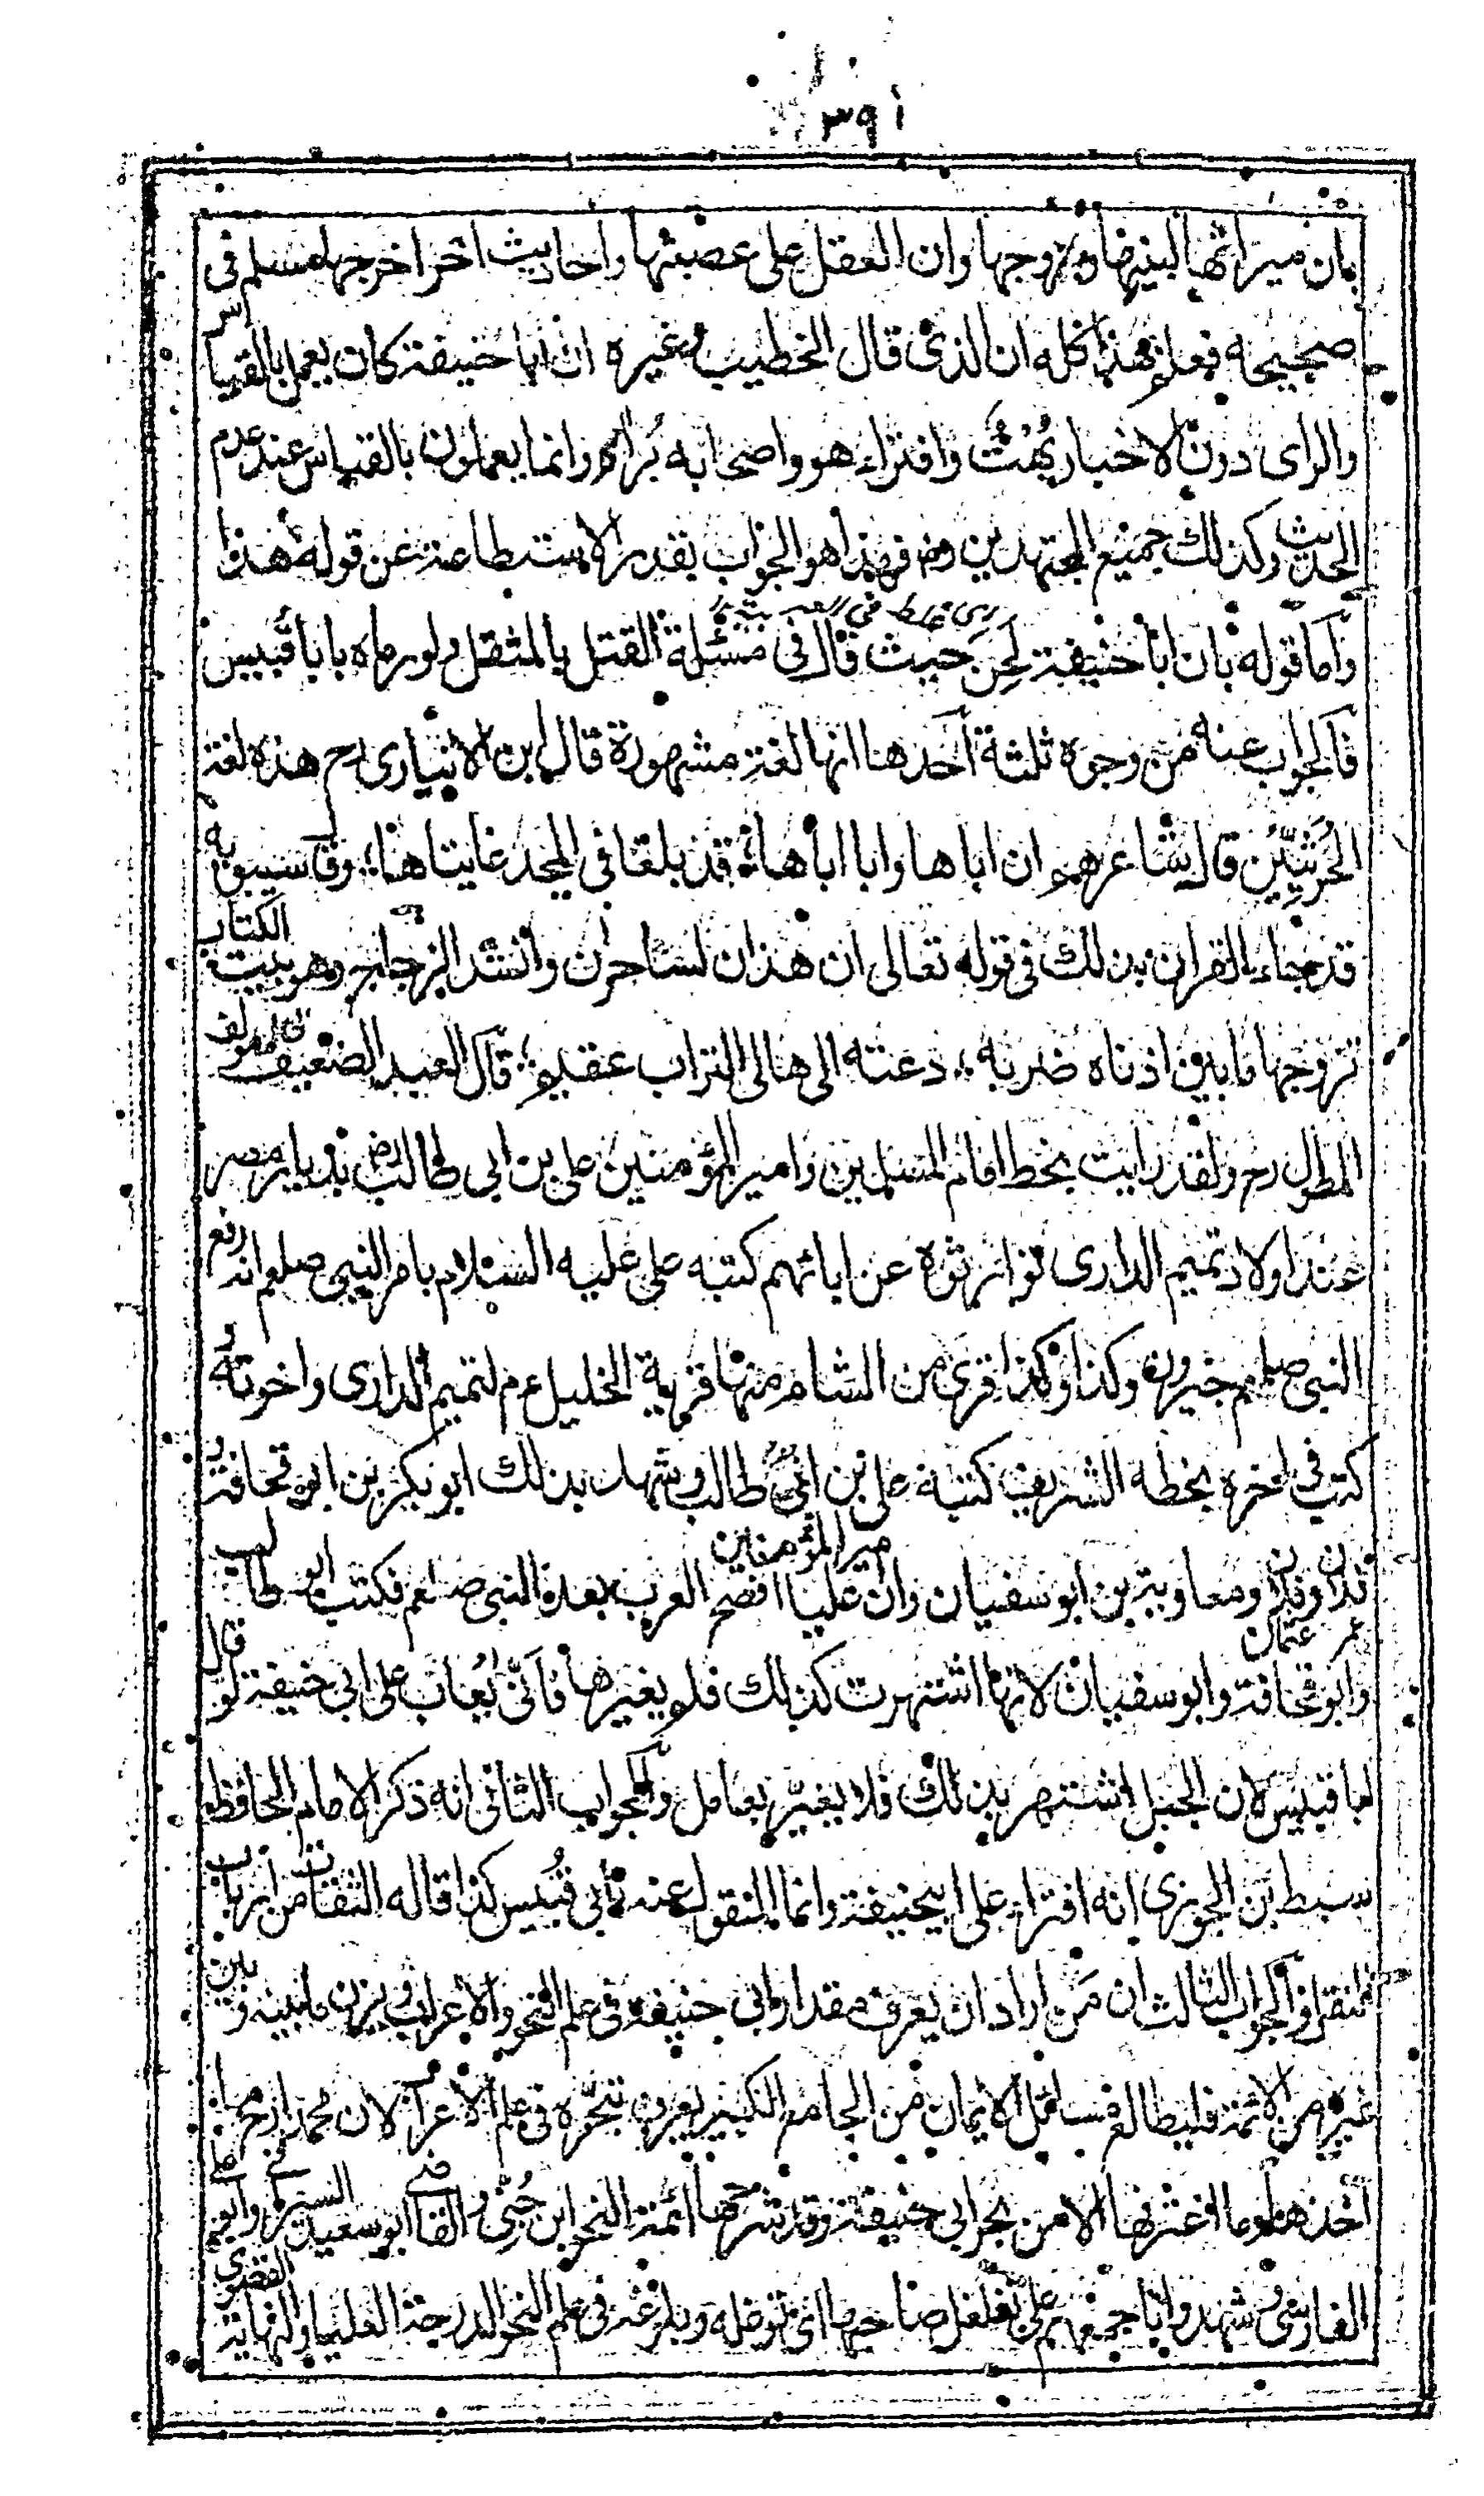 ٣٩١
بان ميراثها لبنيها وزوجها وان العقل على عصبتها واحاديث اخر اخرجها مسلم في
صحيحه فعلم بهذا كله ان الذى قال الخطيب وغيره ان ابا حنيفة كان يعمل بالقياس
والراى دون الاخبار بهت وافتراء هو واصحابه براء وانما يعملون بالقياس عند عدم
الحديث وكذلك جميع المجتهدين رض فهذا هو الجواب بقدر الاستطاعة عن قوله هذا
واما قوله بان ابا حنيفة لحن حيث قال في مسئلة القتل بالمثقل ولو رماه بابا قبيس
فالجواب عنه من وجوه ثلثة احدها انها لغة مشهورة قال ابن الانبارى رح هذه لغة
الحرثيين قال شاعرهم ان اباها وابا اباها قد بلغا في المجد غايتاها وقال سيبويه
قد جاء القران بذلك في قوله تعالى ان هذان لساحران وانشد الزجاج وهو بيت الكتاب
تزوجها ما بين اذناه ضربه دعته الى هالى التراب عقيم قال العبد الضعيف مؤلف
المطول رح ولقد رايت بخط امام المسلمين وامير المؤمنين على بن ابى طالب رض بديار مصر
عند اولاد تميم الدارى توارثوه عن ابائهم كتبه على عليه السلام بامر النبى صلعم انه رفع
النبى صلعم وكذا وكذا قرى من الشام منها قرية الخليل عم لتميم الدارى واخوته و
كتب في اخره بخطه الشريف كتبه على بن ابى طالب وشهد بذلك ابو بكر بن ابو قحافة و
فلان وفلان ومعاوية بن ابو سفيان وان امير المؤمنين عليا افصح العرب بعد النبى صلعم فكتب ابو طالب
عمر عثمان
وابو قحافة وابو سفيان لانها اشتهرت كذلك فلم يغيرها فانى يعاب على ابى حنيفة لو قال
ابا قبيس لان الجبل اشتهر بذلك فلا يغير بعامل والجواب الثانى انه ذكر الامام الحافظ
سبط بن الجوزى انه افتراء على ابيحنيفة وانما المنقول عنه بابى قبيس كذا قاله الثقات من ارباب
النقل والجواب الثالث ان من اراد ان يعرف مقدار ابى حنيفة في علم النحو والاعراب ويزن ما بينه وبين
غيره من الائمة فليطالع مسائل الايمان من الجامع الكبير يعرف تبحره في علم الاعراب لان محمدا رح ما
اخذها وما اغترفها الا من بحر ابى حنيفة وقد شرحها ائمة النحو ابن جنى والقاضى ابو سعيد السيرافى وابو على
الفارسى وشهدوا باجمعهم على تغلغل صاحبها اى توغله وبلوغه في علم النحو الدرجة العليا والنهاية القصوى